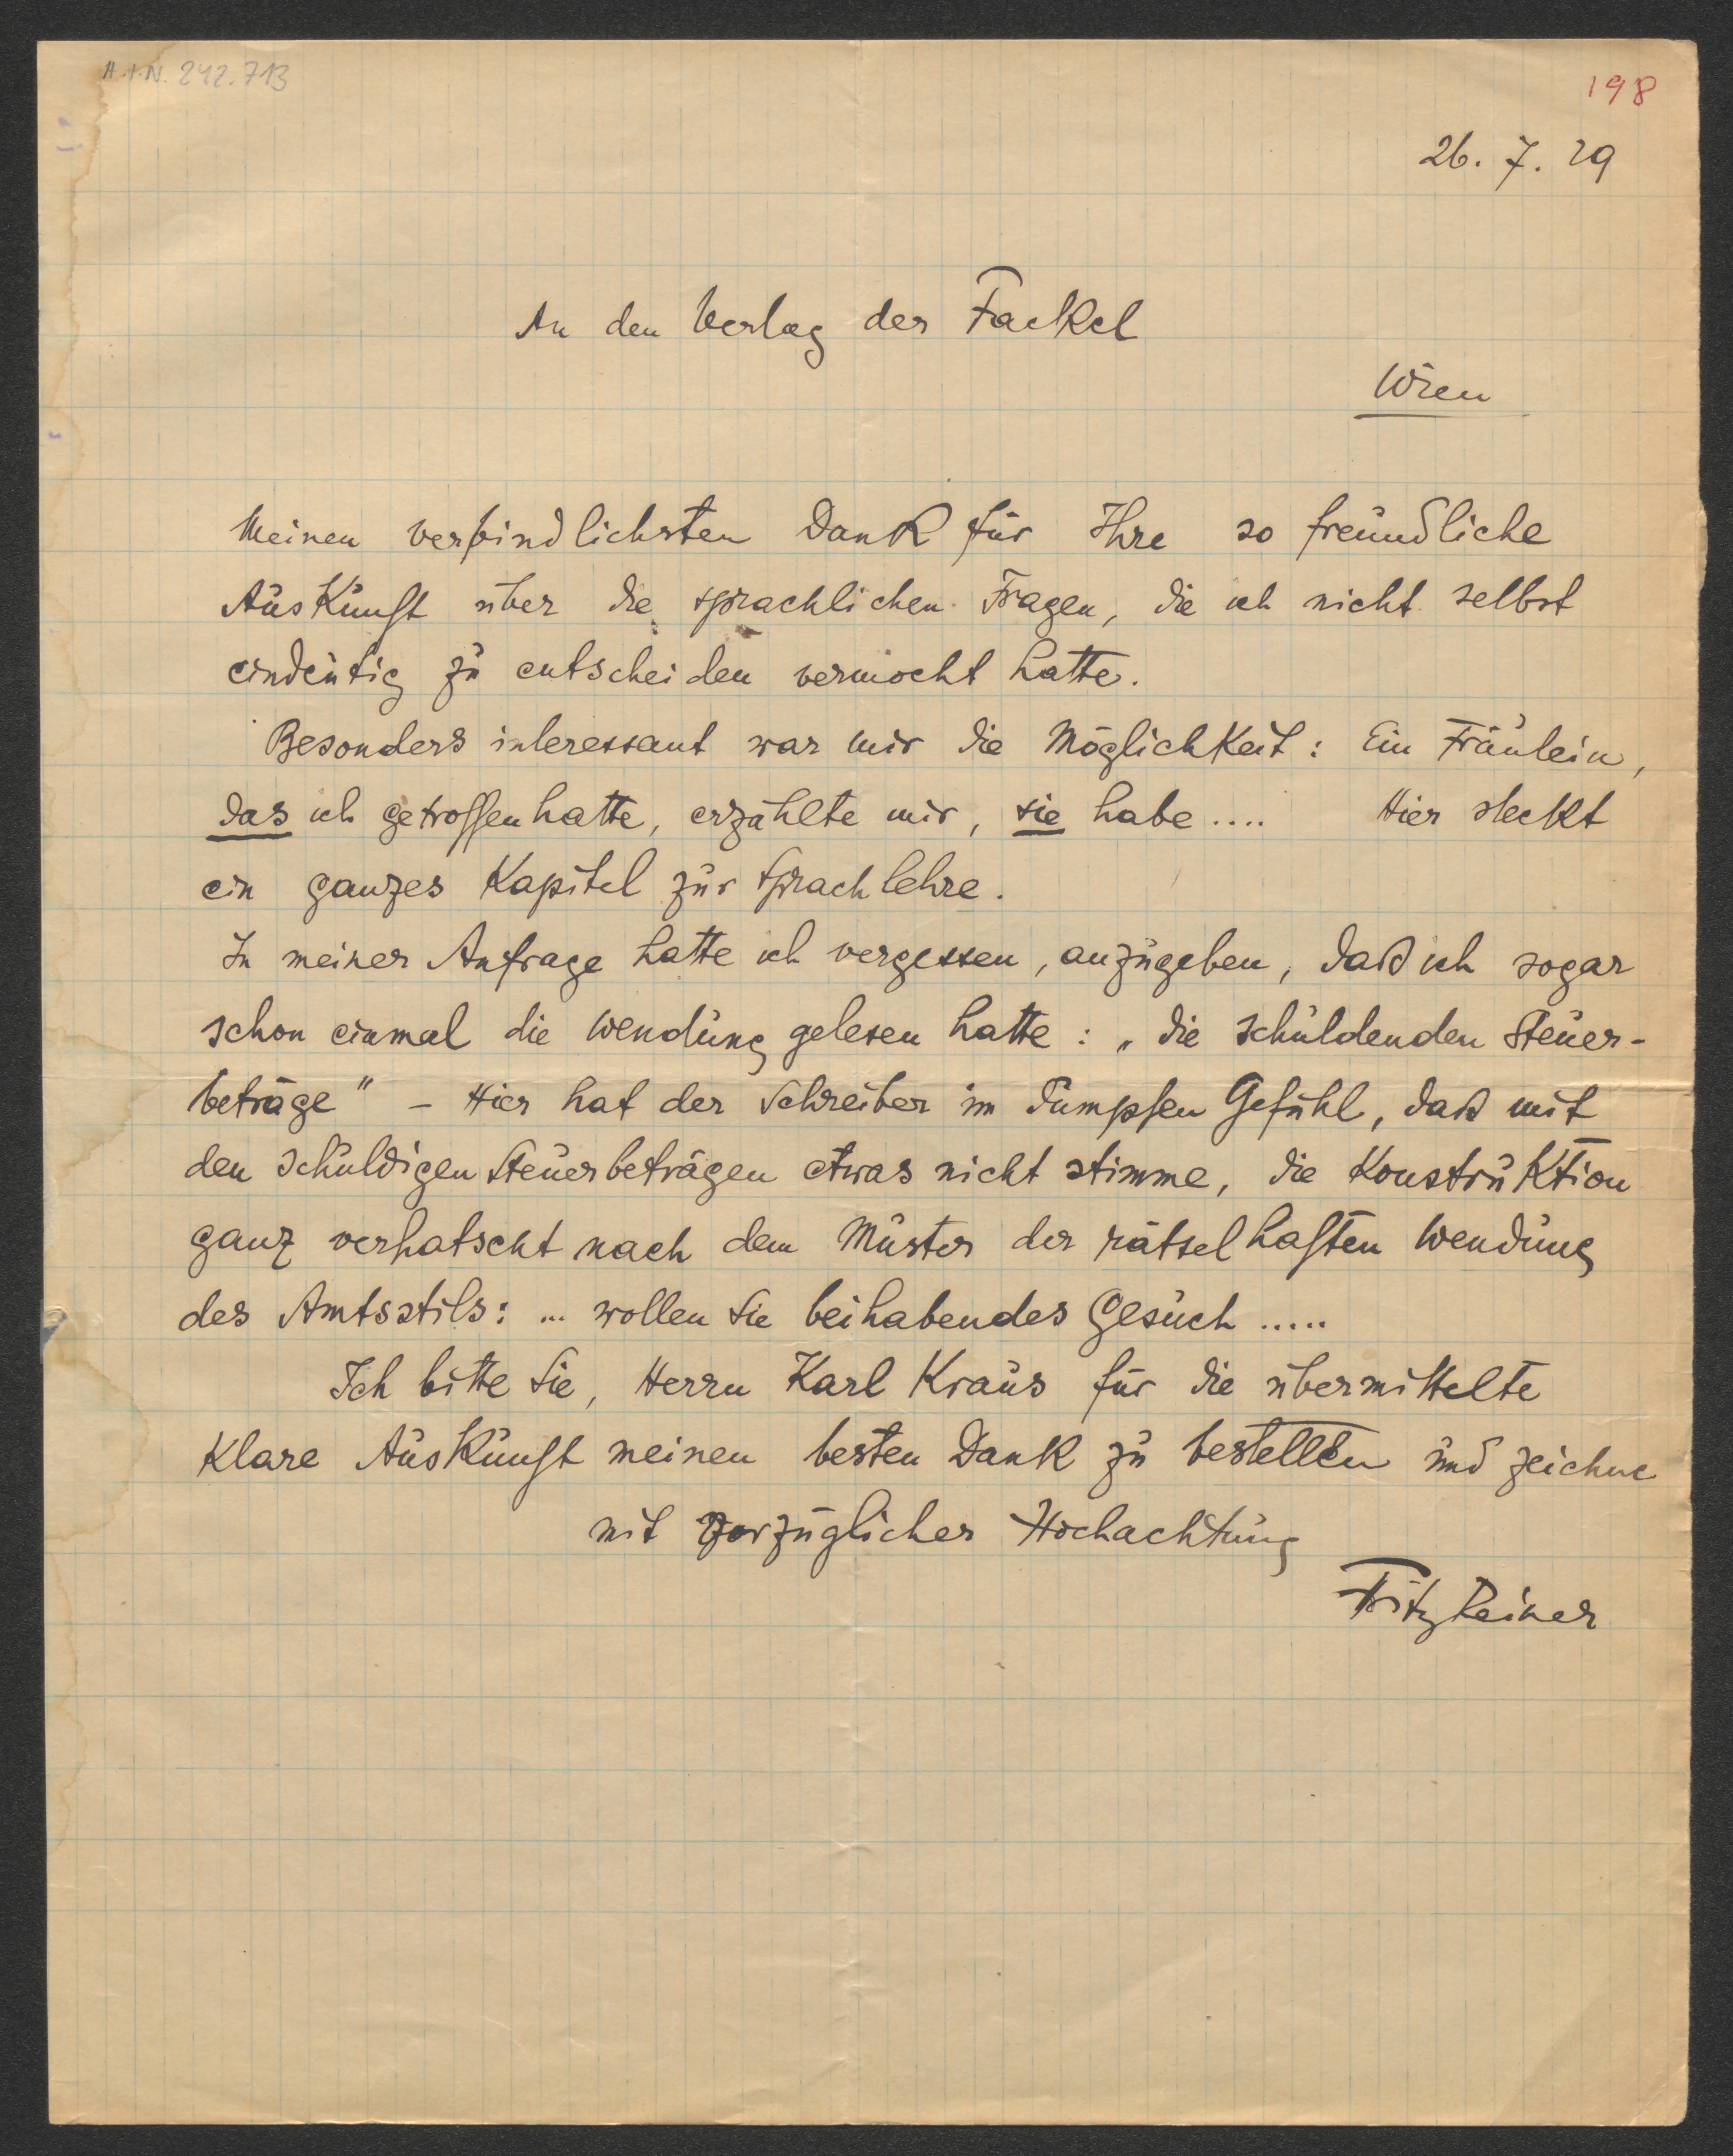 H.I.N. 242.713
198
26. 7. 29
An den Verlag der Fackel
Wien
Meinen verbindlichsten Dank für Ihre so freundliche
Auskunft über die sprachlichen Fragen, die ich nicht selbst
eindeutig zu entscheiden vermocht hatte.
Besonders interessant war mir die Möglichkeit: Ein Fräulein,
das ich getroffen hatte, erzählte mir, sie habe .... Hier steckt
ein ganzes Kapitel zur Sprachlehre.
In meiner Anfrage hatte ich vergessen, anzugeben, daß ich sogar
schon einmal die Wendung gelesen hatte: „die schuldenden Steuer-
beträge" – Hier hat der Schreiber im dumpfen Gefühl, daß mit
den schuldigen Steuerbeträgen etwas nicht stimme, die Konstruktion
ganz verhatscht nach dem Muster der rätselhaften Wendung
des Amtsstils: ... wollen Sie beihabendes Gesuch .....
Ich bitte Sie, Herrn Karl Kraus für die übermittelte
klare Auskunft meinen besten Dank zu bestellen und zeichne
mit vorzüglicher Hochachtung
Fritz Reiner